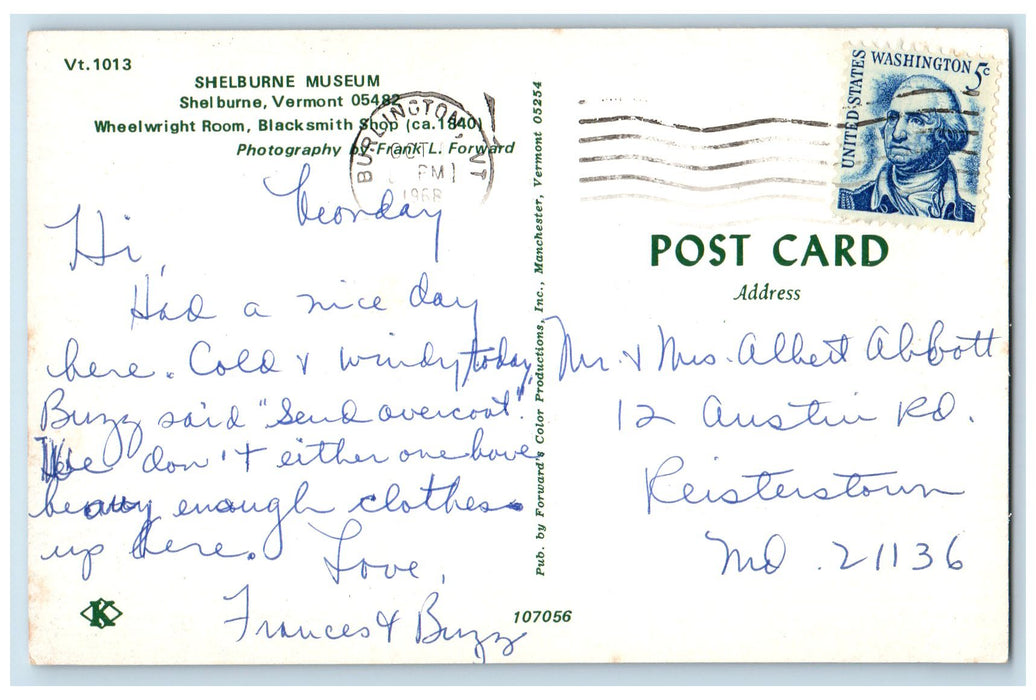 Vt.1013
SHELBURNE MUSEUM
Shelburne, Vermont 05482
Wheelwright Room, Blacksmith Shop (ca.1840)
Photography by Frank L. Forward
BURLINGTON, VT
OCT
PM
1968
UNITED STATES
WASHINGTON 5c
Monday
Hi,
Had a nice day
here. Cold & windy today,
Buzz said "Send overcoat".
We don't either one have
heavy enough clothes
up here.
Love,
Frances & Buzz
K
107056
Pub. by Forward's Color Productions, Inc., Manchester, Vermont 05254
POST CARD
Address
Mr. & Mrs. Albert Abbott
12 Austin Rd.
Reisterstown
Md. 21136